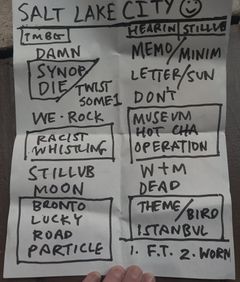 SALT LAKE CITY
TMBG
DAMN
SYNOP
DIE
TWIST
SOME1
WE·ROCK
RACIST
WHISTLING
STILLUB
MOON
BRONTO
LUCKY
ROAD
PARTICLE
HEARIN STILLUB
MEMO/MINIM
LETTER/SUN
DON'T
MUSEUM
HOT CHA
OPERATION
W+M
DEAD
THEME/BIRD
ISTANBUL
1. F.T. 2. WORN